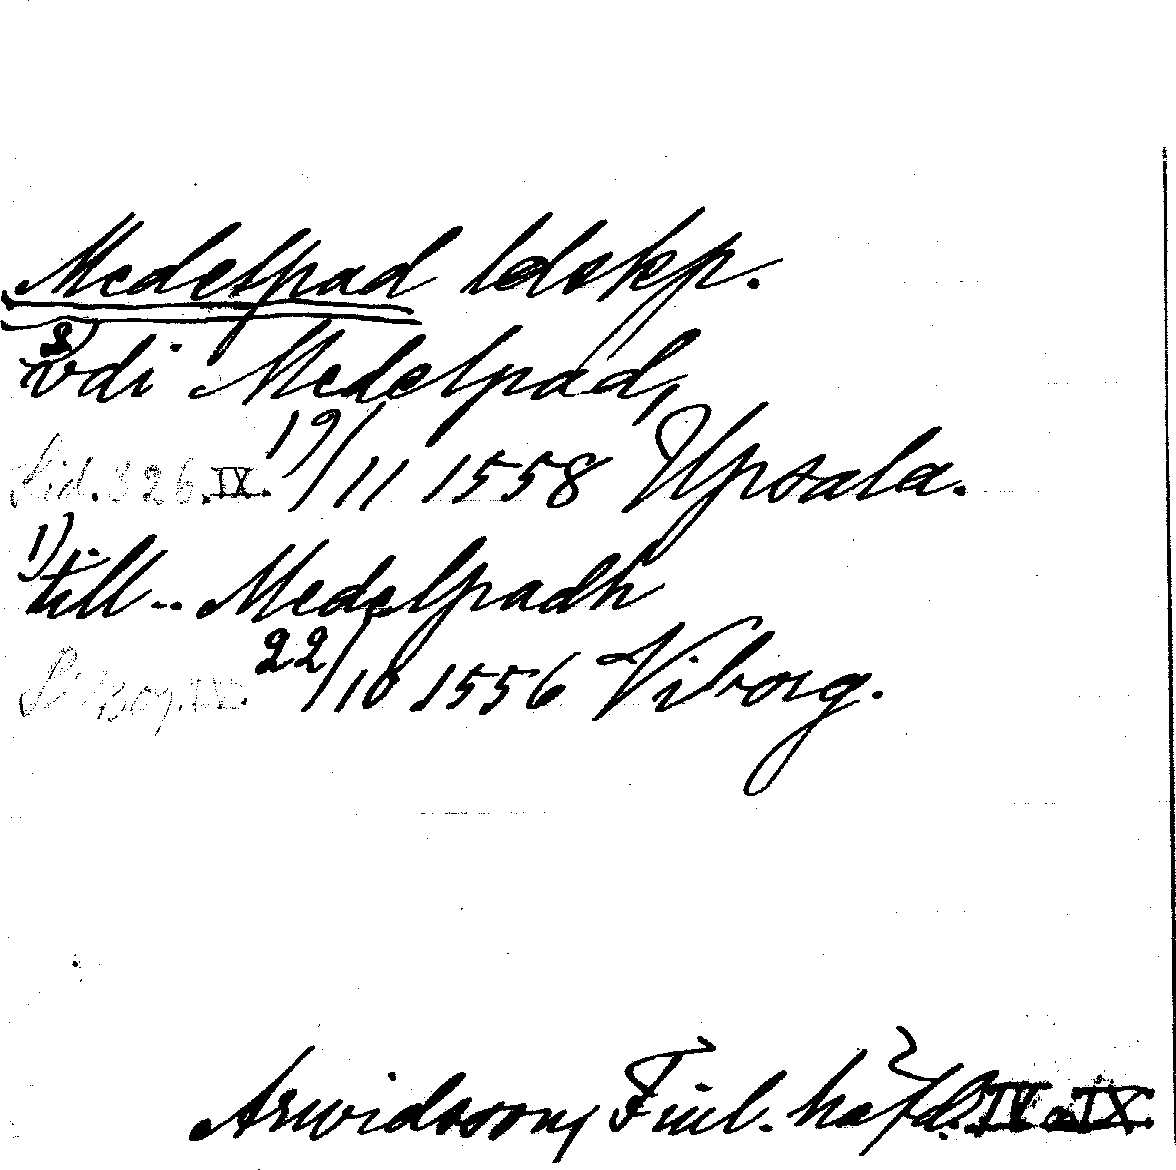 Medelpad ldskp.
2) vdi Medelpad,
Sid. 326. IX. 19/11 1558 Upsala.
1) till -- Medelpadh
22/10 1556 Viborg.
Arwidsson, Finl. häfd. IV o IX.